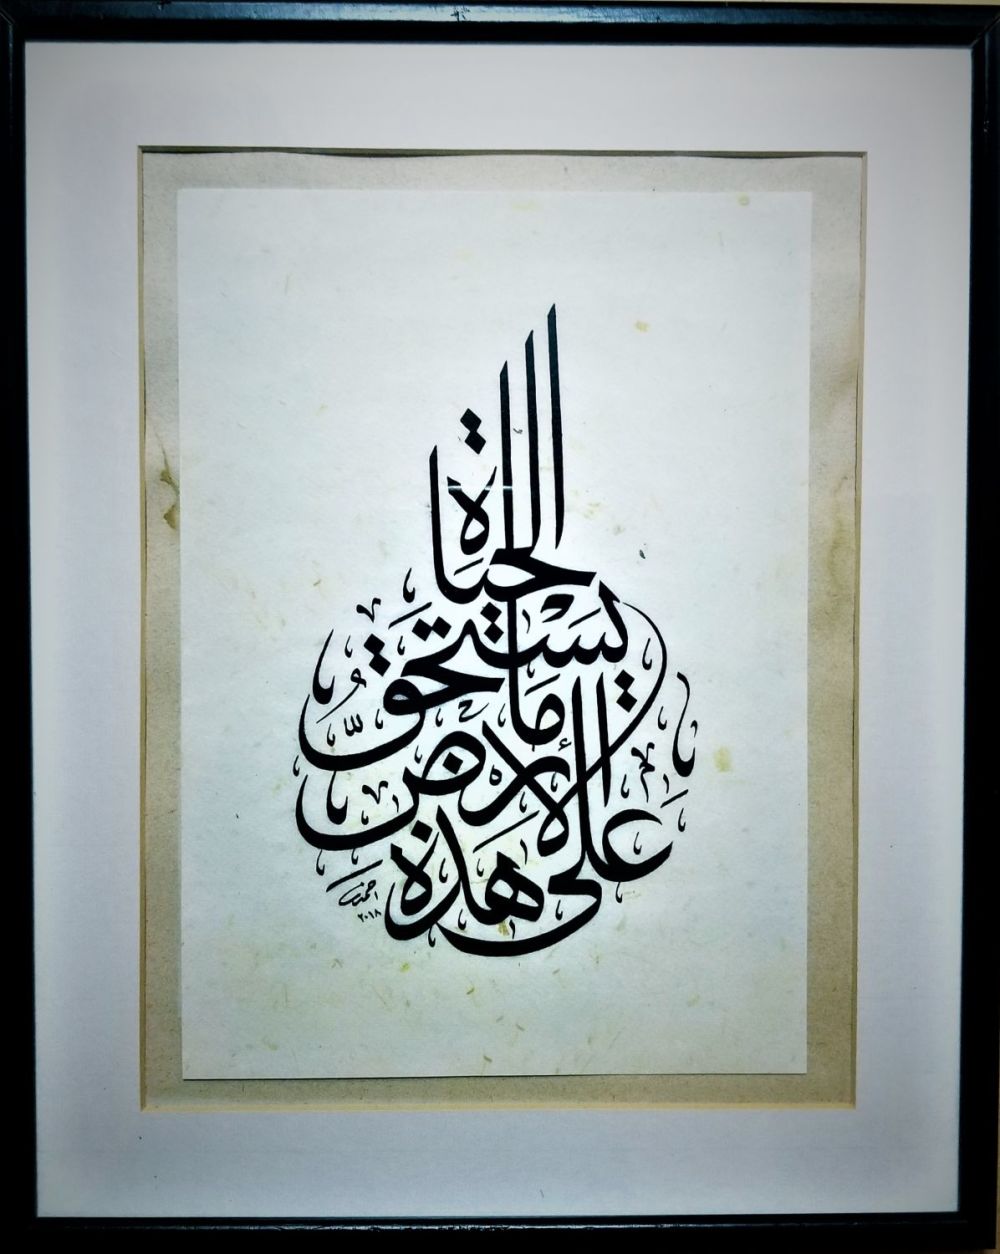 على هذه
الأرض
ما
يستحقّ
الحياة
احمد
٢٠١٨